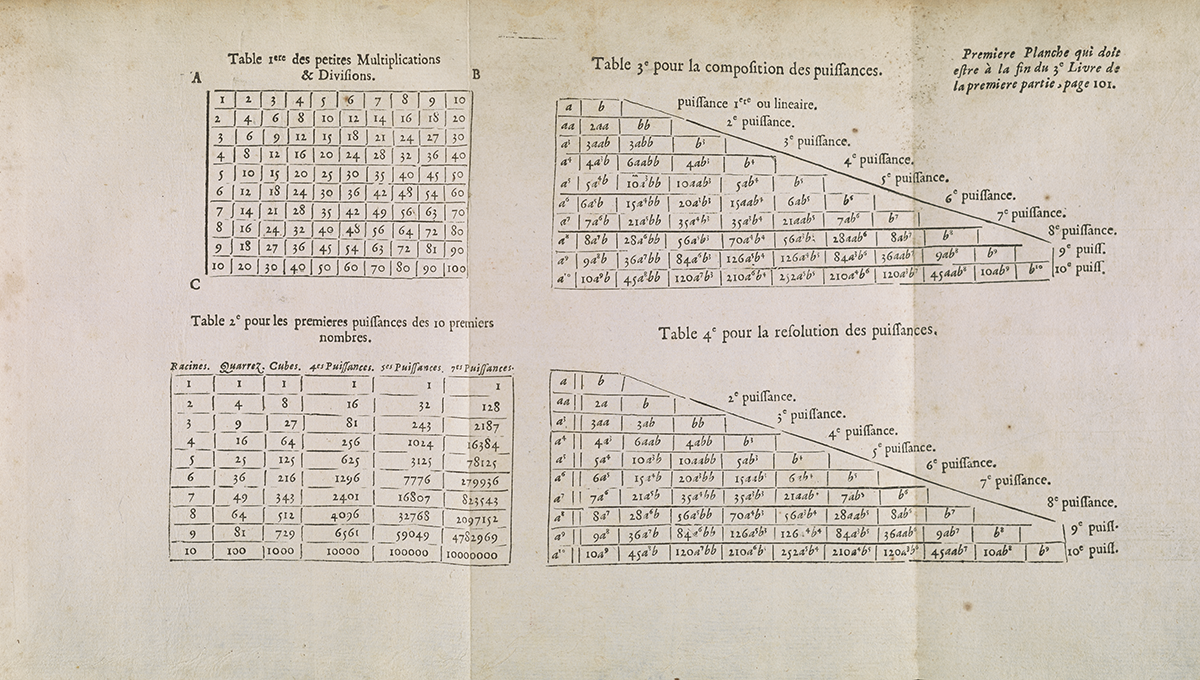 Table 1ere des petites Multiplications
& Diviſions.
A B
1 2 3 4 5 6 7 8 9 10
2 4 6 8 10 12 14 16 18 20
3 6 9 12 15 18 21 24 27 30
4 8 12 16 20 24 28 32 36 40
5 10 15 20 25 30 35 40 45 50
6 12 18 24 30 36 42 48 54 60
7 14 21 28 35 42 49 56 63 70
8 16 24 32 40 48 56 64 72 80
9 18 27 36 45 54 63 72 81 90
10 20 30 40 50 60 70 80 90 100
C
Table 2e pour les premieres puiſſances des 10 premiers
nombres.
Racines. Quarrez. Cubes. 4es Puiſſances. 5es Puiſſances. 7es Puiſſances.
1 1 1 1 1 1
2 4 8 16 32 128
3 9 27 81 243 2187
4 16 64 256 1024 16384
5 25 125 625 3125 78125
6 36 216 1296 7776 279936
7 49 343 2401 16807 823543
8 64 512 4096 32768 2097152
9 81 729 6561 59049 4782969
10 100 1000 10000 100000 10000000
Premiere Planche qui doit
eſtre à la fin du 3e Livre de
la premiere partie, page 101.
Table 3e pour la compoſition des puiſſances.
a b puiſſance 1ere ou lineaire.
aa 2aa bb 2e puiſſance.
a³ 3aab 3abb b³ 3e puiſſance.
a⁴ 4a³b 6aabb 4ab³ b⁴ 4e puiſſance.
a⁵ 5a⁴b 10a³bb 10aab³ 5ab⁴ b⁵ 5e puiſſance.
a⁶ 6a⁵b 15a⁴bb 20a³b³ 15aab⁴ 6ab⁵ b⁶ 6e puiſſance.
a⁷ 7a⁶b 21a⁵bb 35a⁴b³ 35a³b⁴ 21aab⁵ 7ab⁶ b⁷ 7e puiſſance.
a⁸ 8a⁷b 28a⁶bb 56a⁵b³ 70a⁴b⁴ 56a³b⁵ 28aab⁶ 8ab⁷ b⁸ 8e puiſſance.
a⁹ 9a⁸b 36a⁷bb 84a⁶b³ 126a⁵b⁴ 126a⁴b⁵ 84a³b⁶ 36aab⁷ 9ab⁸ b⁹ 9e puiſſ.
a¹⁰ 10a⁹b 45a⁸bb 120a⁷b³ 210a⁶b⁴ 252a⁵b⁵ 210a⁴b⁶ 120a³b⁷ 45aab⁸ 10ab⁹ b¹⁰ 10e puiſſ.
Table 4e pour la reſolution des puiſſances.
a b
aa 2a b 2e puiſſance.
a³ 3aa 3ab bb 3e puiſſance.
a⁴ 4a³ 6aab 4abb b³ 4e puiſſance.
a⁵ 5a⁴ 10a³b 10aabb 5ab³ b⁴ 5e puiſſance.
a⁶ 6a⁵ 15a⁴b 20a³bb 15aab³ 6ab⁴ b⁵ 6e puiſſance.
a⁷ 7a⁶ 21a⁵b 35a⁴bb 35a³b³ 21aab⁴ 7ab⁵ b⁶ 7e puiſſance.
a⁸ 8a⁷ 28a⁶b 56a⁵bb 70a⁴b³ 56a³b⁴ 28aab⁵ 8ab⁶ b⁷ 8e puiſſance.
a⁹ 9a⁸ 36a⁷b 84a⁶bb 126a⁵b³ 126a⁴b⁴ 84a³b⁵ 36aab⁶ 9ab⁷ b⁸ 9e puiſſ.
a¹⁰ 10a⁹ 45a⁸b 120a⁷bb 210a⁶b³ 252a⁵b⁴ 210a⁴b⁵ 120a³b⁶ 45aab⁷ 10ab⁸ b⁹ 10e puiſſ.